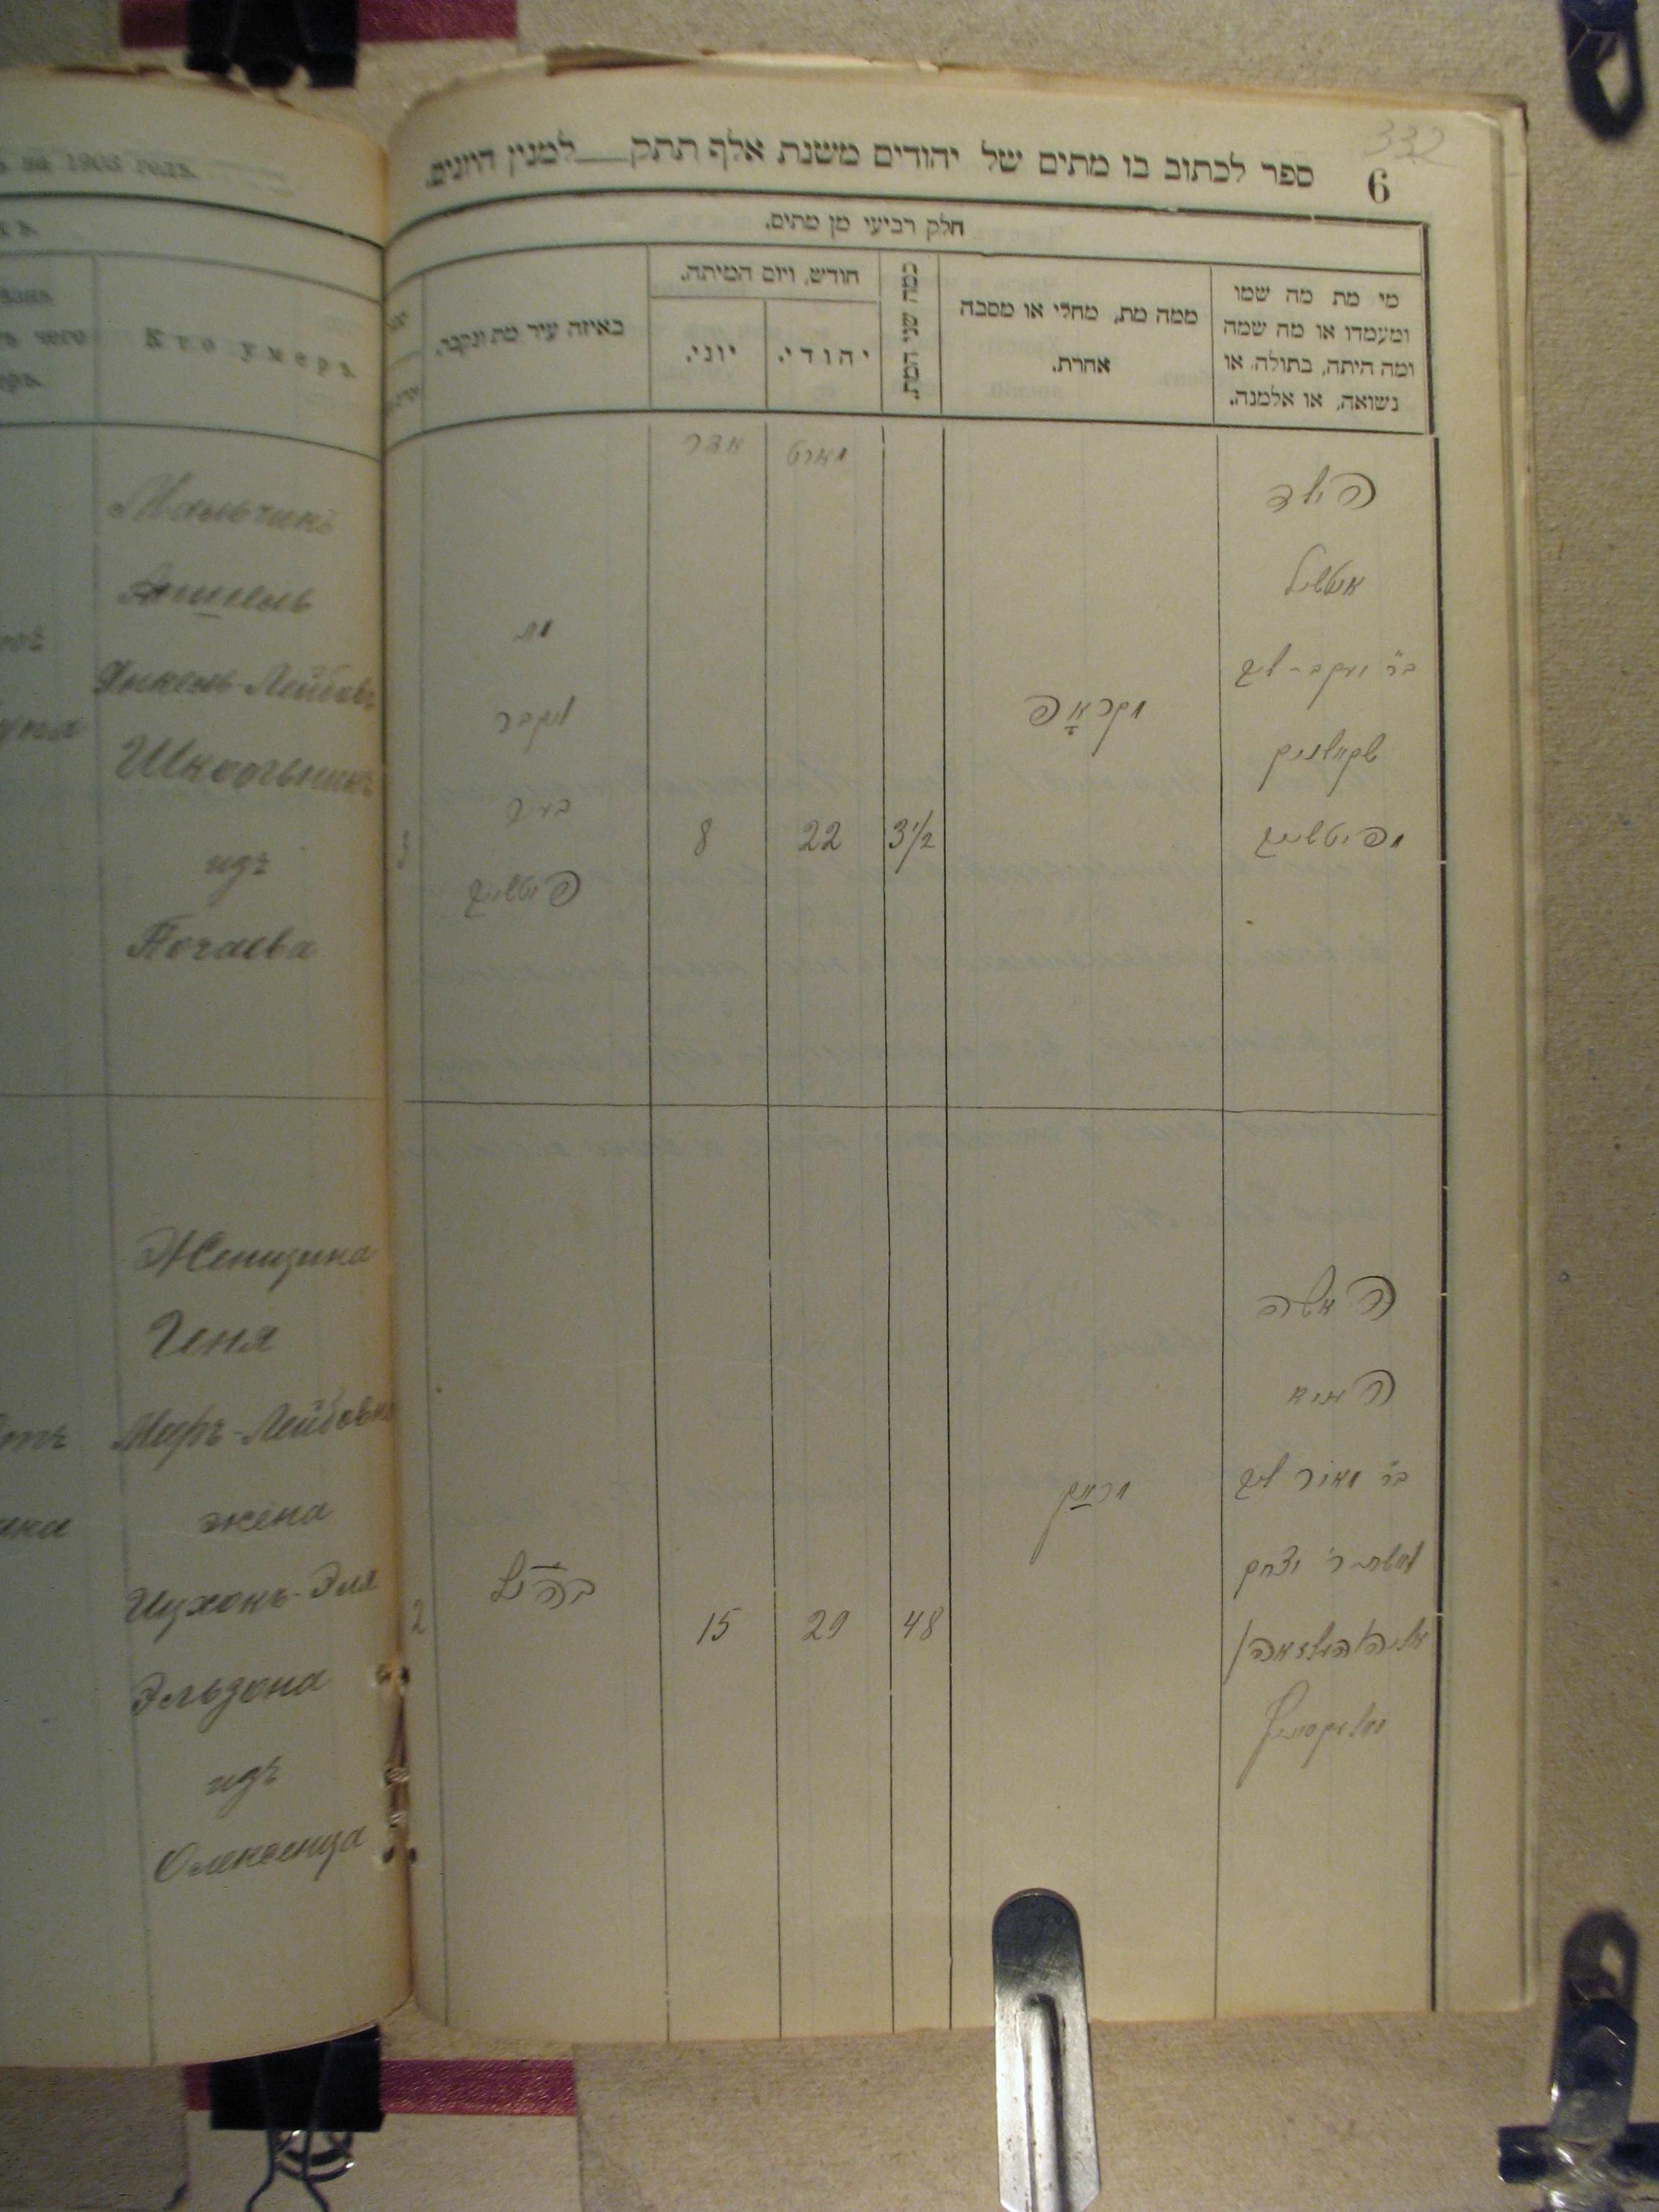 на 1903 годъ.
Кто умеръ.
чего
Мальчикъ
Аншель
Янкель-Лейбовъ
Школьникъ
изъ
Почаева
Женщина
Геня
Меръ-Лейбовна
жена
Ицхокъ-Эля
Эльзона
изъ
Олексенца
332
6
ספר לכתוב בו מתים של יהודים משנת אלף תתק למנין היונים.
חלק רביעי מן מתים.
מי מת מה שמו
ומעמדו או מה שמה
ומה היתה, בתולה, או
נשואה, או אלמנה.
ממה מת, מחלי או מסבה
אחרת.
כמה שני המת.
חודש, ויום המיתה.
יהודי.
יוני.
באיזה עיר מת ונקבר.
מארט
אדר
הילד
אנשיל
בר יעקב-ליב
שקאלניק
מפיטשיוב
מקראפ
3½
22
8
מת
ונקבר
פיטשיוב
האשה
בר מאיר ליב
לאשת ר' יצחק
48
29
15
בהנ"ל
2